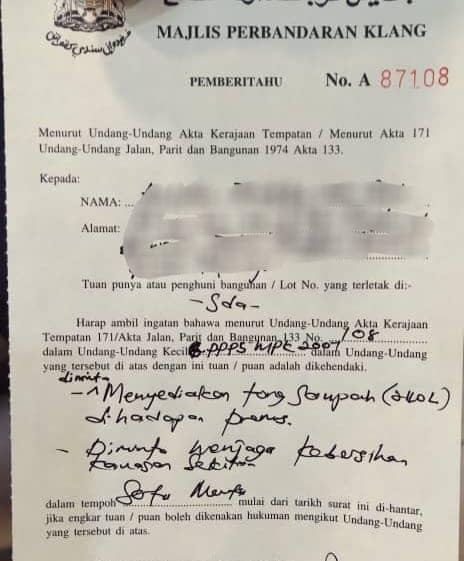 MAJLIS PERBANDARAN KLANG
PEMBERITAHU No. A 87108
Menurut Undang-Undang Akta Kerajaan Tempatan / Menurut Akta 171
Undang-Undang Jalan, Parit dan Bangunan 1974 Akta 133.
Kepada:
NAMA: ...
Alamat:
Tuan punya atau penghuni bangunan / Lot No. yang terletak di:-
- Sda -
Harap ambil ingatan bahawa menurut Undang-Undang Akta Kerajaan
Tempatan 171/Akta Jalan, Parit dan Bangunan 133 No. 108
dalam Undang-Undang Kecil PPPS MPK 2007 dalam Undang-Undang
yang tersebut di atas dengan ini tuan / puan adalah dikehendaki.
- Menyediakan tong Sampah
dihadapan premis.
- Diminta menjaga kebersihan
Kawasan Sekitar
dalam tempoh Satu mulai dari tarikh surat ini di-hantar,
jika engkar tuan / puan boleh dikenakan hukuman mengikut Undang-Undang
yang tersebut di atas.